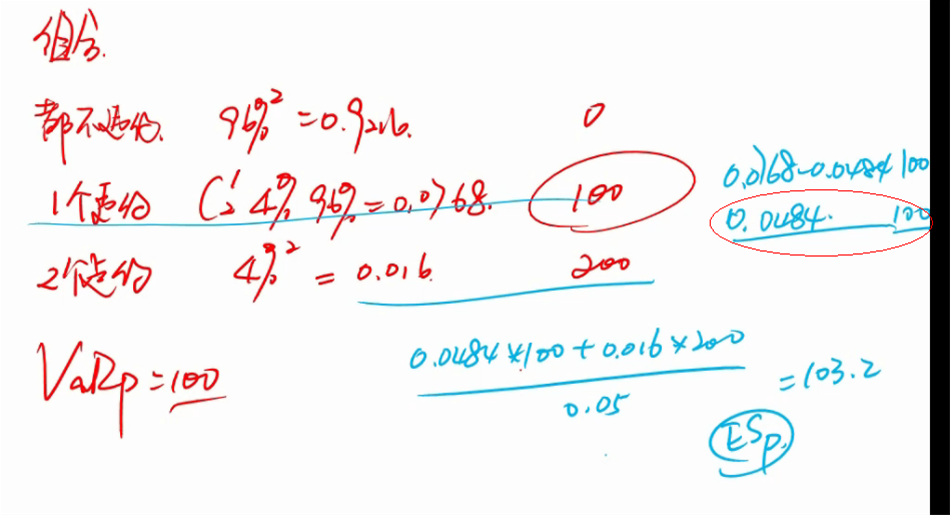 组合.
都不违约. 96%² = 0.9216. 0
1个违约 C₂¹ 4% 96% = 0.0768. 100
0.0768-0.0484 100
0.0484. 100
2个违约 4%² = 0.016 200
VaRp = 100
0.0484*100 + 0.016*200
0.05
= 103.2
ESp.